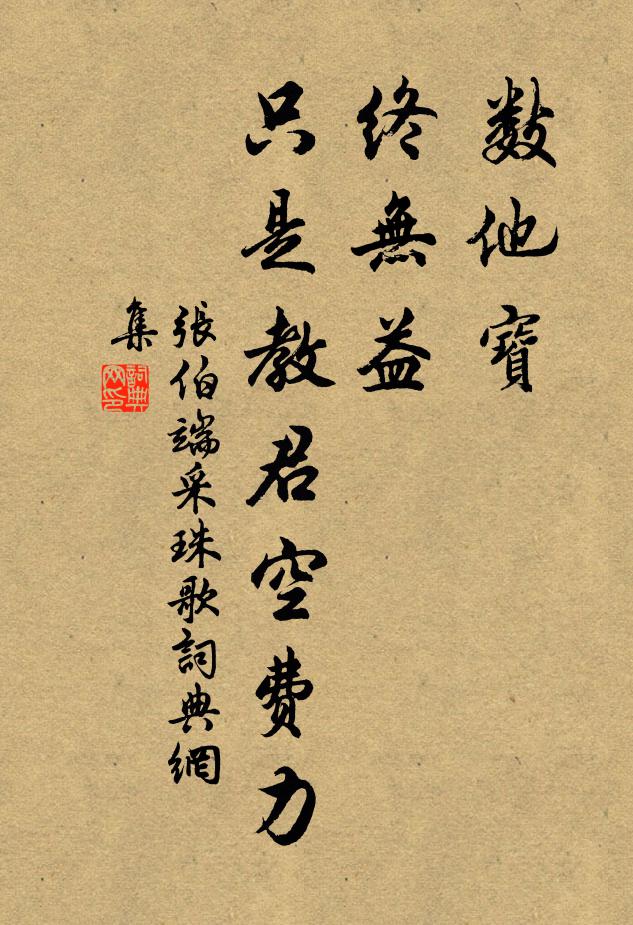 数他寶
終無益
只是教君空費力
張伯端采珠歌詞典網
集
詞典
网印